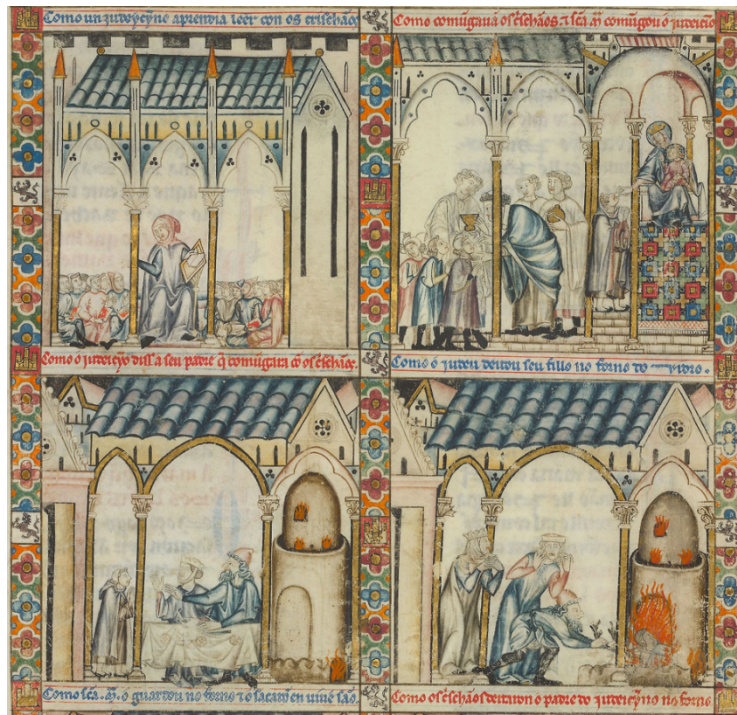 Como un judeucỹno aprendia leer con os crischãos
Como comũgavã os crischãos ⁊ sc̃a m̃ comũgou o judeucỹo
Como o judeucỹo diss a seu padre q̃ comũgara cõ os crischãos.
Como o judeu deitou seu fillo no forno do vidro.
Como sc̃a. m̃. o guardou no forno ⁊ o sacarõ en vivo ⁊ são.
Como os crischãos deitaron o padre do judeucỹno no forno.